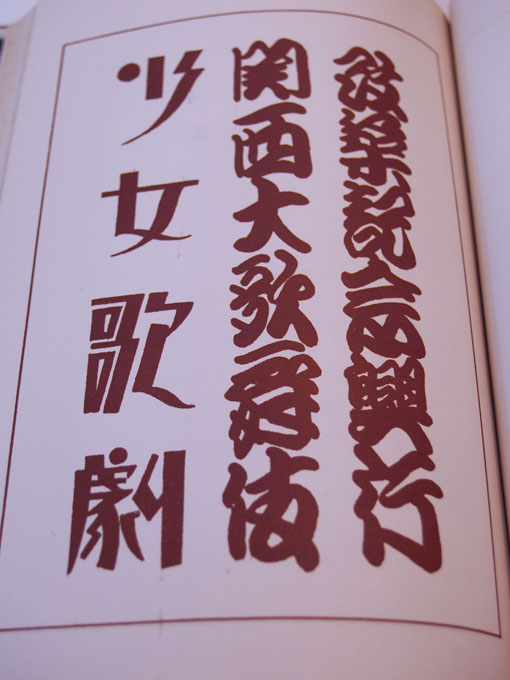 改築記念興行
関西大歌舞伎
少女歌劇